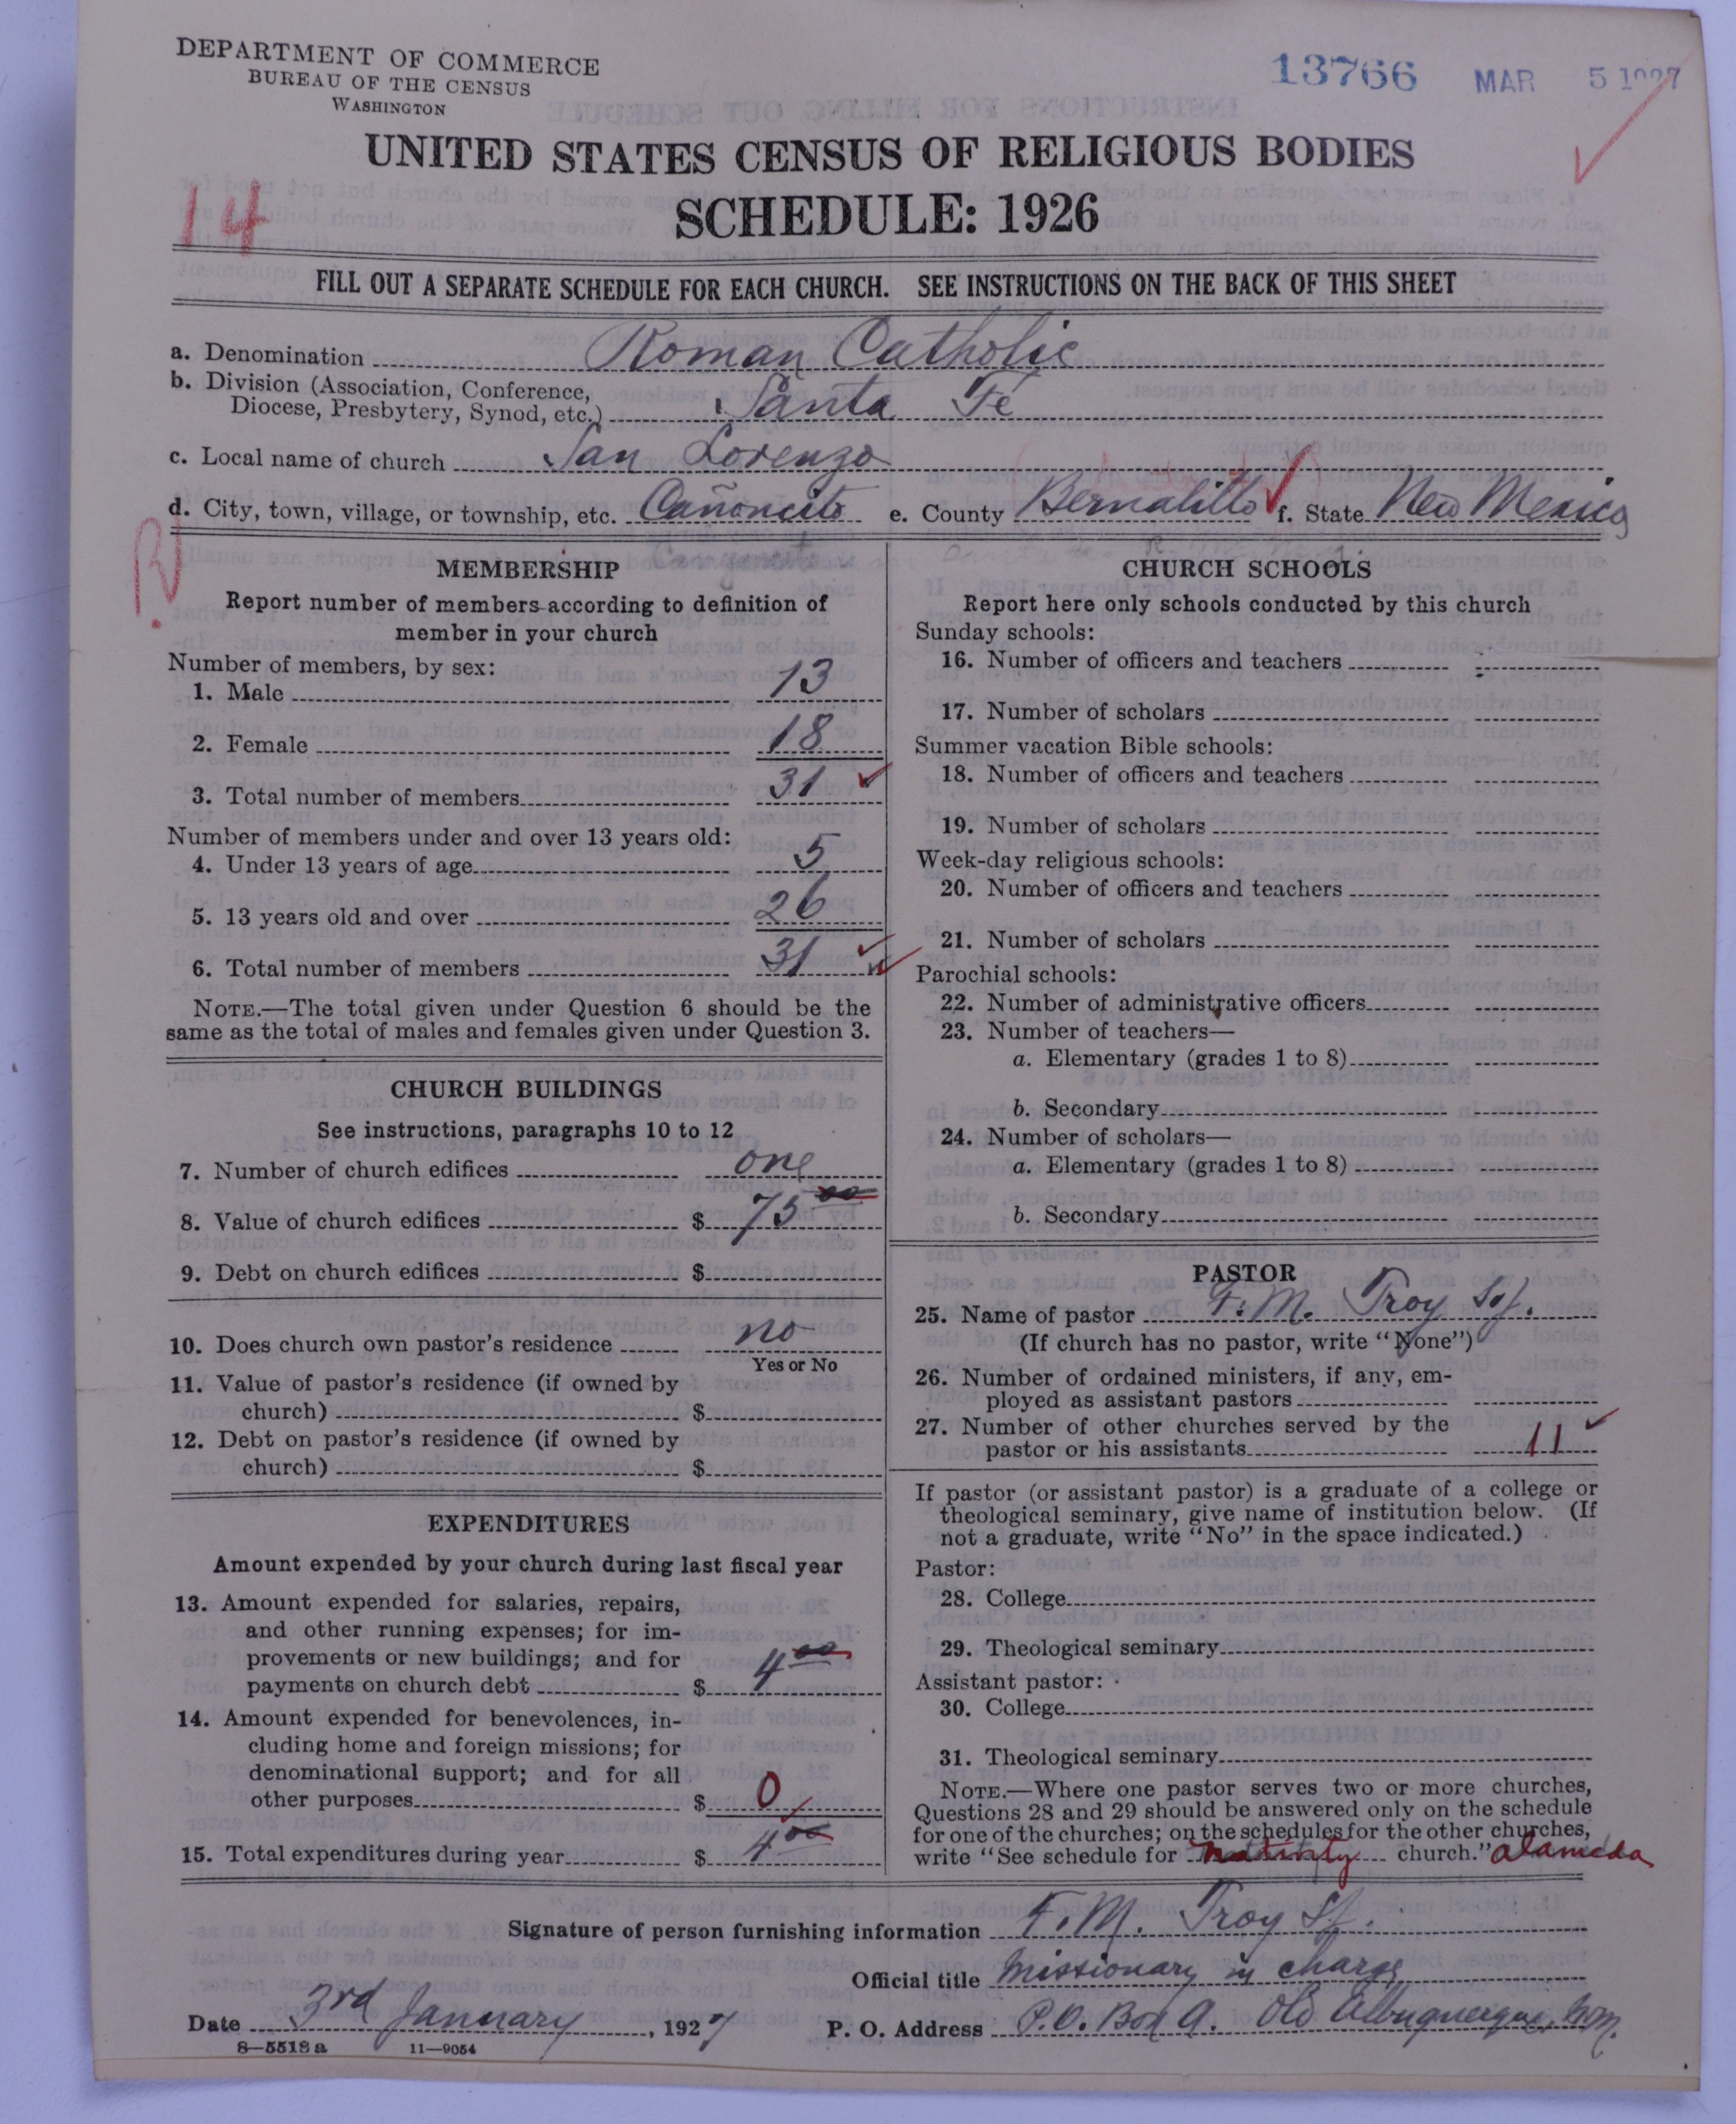 DEPARTMENT OF COMMERCE
BUREAU OF THE CENSUS
WASHINGTON
13766 MAR 5 1927
UNITED STATES CENSUS OF RELIGIOUS BODIES
SCHEDULE: 1926
14
FILL OUT A SEPARATE SCHEDULE FOR EACH CHURCH. SEE INSTRUCTIONS ON THE BACK OF THIS SHEET
a. Denomination Roman Catholic
b. Division (Association, Conference,
Diocese, Presbytery, Synod, etc.) Santa Fe
c. Local name of church San Lorenzo
d. City, town, village, or township, etc. Cañoncito e. County Bernalillo f. State New Mexico
MEMBERSHIP
Report number of members according to definition of
member in your church
Number of members, by sex:
1. Male 13
2. Female 18
3. Total number of members 31
Number of members under and over 13 years old:
4. Under 13 years of age 5
5. 13 years old and over 26
6. Total number of members 31
NOTE.—The total given under Question 6 should be the
same as the total of males and females given under Question 3.
CHURCH BUILDINGS
See instructions, paragraphs 10 to 12
7. Number of church edifices one
8. Value of church edifices $ 75 00
9. Debt on church edifices $
10. Does church own pastor's residence no
Yes or No
11. Value of pastor's residence (if owned by
church) $
12. Debt on pastor's residence (if owned by
church) $
EXPENDITURES
Amount expended by your church during last fiscal year
13. Amount expended for salaries, repairs,
and other running expenses; for im-
provements or new buildings; and for
payments on church debt $ 4 00
14. Amount expended for benevolences, in-
cluding home and foreign missions; for
denominational support; and for all
other purposes $ 0
15. Total expenditures during year $ 4 00
CHURCH SCHOOLS
Report here only schools conducted by this church
Sunday schools:
16. Number of officers and teachers
17. Number of scholars
Summer vacation Bible schools:
18. Number of officers and teachers
19. Number of scholars
Week-day religious schools:
20. Number of officers and teachers
21. Number of scholars
Parochial schools:
22. Number of administrative officers
23. Number of teachers—
a. Elementary (grades 1 to 8)
b. Secondary
24. Number of scholars—
a. Elementary (grades 1 to 8)
b. Secondary
PASTOR
25. Name of pastor F. M. Troy S.J.
(If church has no pastor, write "None")
26. Number of ordained ministers, if any, em-
ployed as assistant pastors
27. Number of other churches served by the
pastor or his assistants 11
If pastor (or assistant pastor) is a graduate of a college or
theological seminary, give name of institution below. (If
not a graduate, write "No" in the space indicated.)
Pastor:
28. College
29. Theological seminary
Assistant pastor:
30. College
31. Theological seminary
NOTE.—Where one pastor serves two or more churches,
Questions 28 and 29 should be answered only on the schedule
for one of the churches; on the schedules for the other churches,
write "See schedule for Nativity church." Alameda
Signature of person furnishing information F. M. Troy SJ.
Official title Missionary in charge
Date 3rd January, 1927 P. O. Address P.O. Box A. Old Albuquerque, N.M.
8—5518 a 11—9054